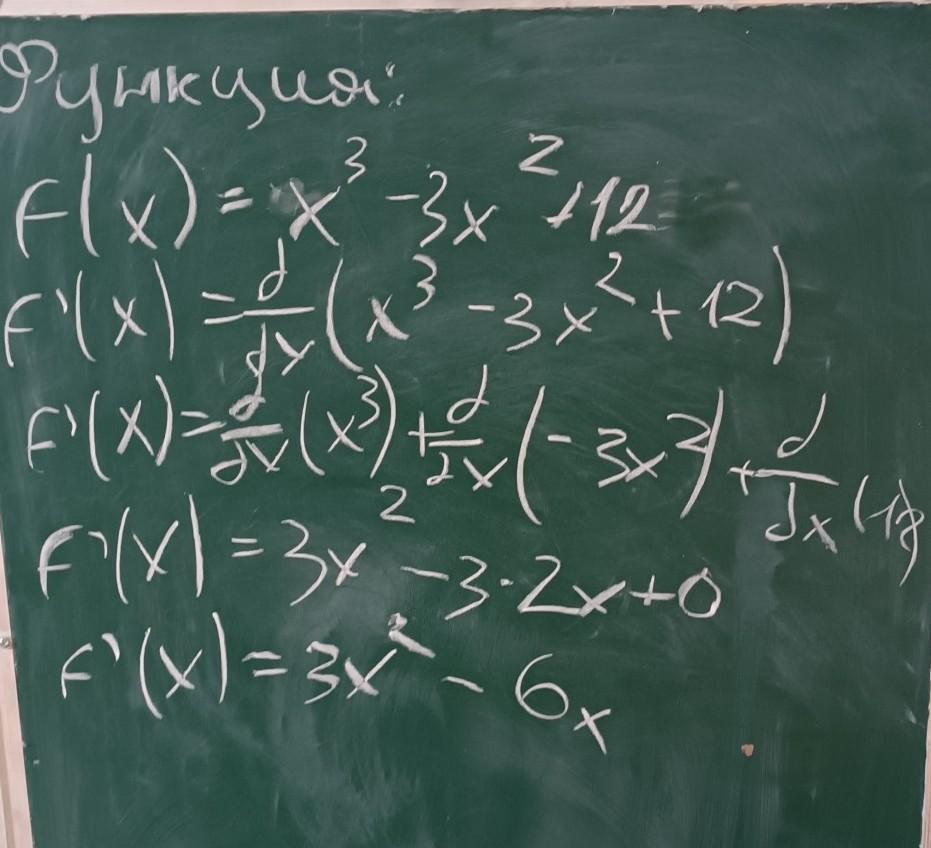 Функция:
F(x) = x³ - 3x² + 12
F'(x) = d/dx (x³ - 3x² + 12)
F'(x) = d/dx (x³) + d/dx (-3x²) + d/dx (12)
F'(x) = 3x² - 3·2x + 0
F'(x) = 3x² - 6x